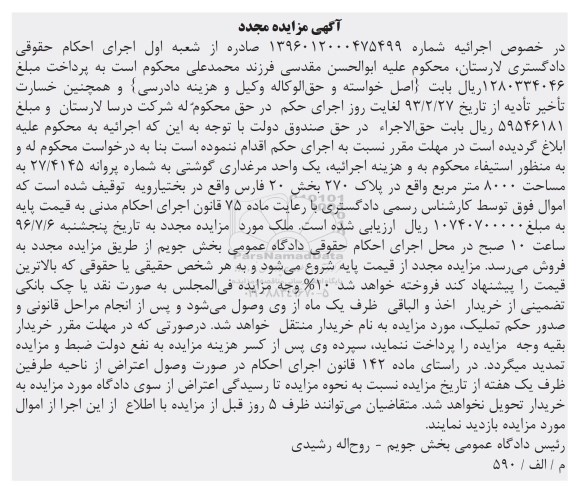 آگهی مزایده مجدد
در خصوص اجرائیه شماره ۱۳۹۶۰۱۲۰۰۰۴۷۵۴۹۹ صادره از شعبه اول اجرای احکام حقوقی
دادگستری لارستان، محکوم علیه ابوالحسن مقدسی فرزند محمدعلی محکوم است به پرداخت مبلغ
۱۲۸۰۳۳۴۰۴۶ریال بابت {اصل خواسته و حق‌الوکاله وکیل و هزینه دادرسی} و همچنین خسارت
تأخیر تأدیه از تاریخ ۹۳/۲/۲۷ لغایت روز اجرای حکم در حق محکوم‌ٌله شرکت درسا لارستان و مبلغ
۵۹۵۴۶۱۸۱ ریال بابت حق‌الاجراء در حق صندوق دولت با توجه به این که اجرائیه به محکوم علیه
ابلاغ گردیده است در مهلت مقرر نسبت به اجرای حکم اقدام ننموده است بنا به درخواست محکوم له و
به منظور استیفاء محکوم به و هزینه اجرائیه، یک واحد مرغداری گوشتی به شماره پروانه ۲۷/۴۱۴۵ به
مساحت ۸۰۰۰ متر مربع واقع در پلاک ۲۷۰ بخش ۲۰ فارس واقع در بختیارویه توقیف شده است که
اموال فوق توسط کارشناس رسمی دادگستری با رعایت ماده ۷۵ قانون اجرای احکام مدنی به قیمت پایه
به مبلغ ۱۰۷۴۰۷۰۰۰۰۰ ریال ارزیابی شده است. ملک مورد مزایده مجدد به تاریخ پنجشنبه ۹۶/۷/۶
ساعت ۱۰ صبح در محل اجرای احکام حقوقی دادگاه عمومی بخش جویم از طریق مزایده مجدد به
فروش می‌رسد. مزایده مجدد از قیمت پایه شروع می‌شود و به هر شخص حقیقی یا حقوقی که بالاترین
قیمت را پیشنهاد کند فروخته خواهد شد ۱۰% وجه مزایده فی‌المجلس به صورت نقد یا چک بانکی
تضمینی از خریدار اخذ و الباقی ظرف یک ماه از وی وصول می‌شود و پس از انجام مراحل قانونی و
صدور حکم تملیک، مورد مزایده به نام خریدار منتقل خواهد شد. درصورتی که در مهلت مقرر خریدار
بقیه وجه مزایده را پرداخت ننماید، سپرده وی پس از کسر هزینه مزایده به نفع دولت ضبط و مزایده
تمدید میگردد. در راستای ماده ۱۴۲ قانون اجرای احکام در صورت وصول اعتراض از ناحیه طرفین
ظرف یک هفته از تاریخ مزایده نسبت به نحوه مزایده تا رسیدگی اعتراض از سوی دادگاه مورد مزایده به
خریدار تحویل نخواهد شد. متقاضیان می‌توانند ظرف ۵ روز قبل از مزایده با اطلاع از این اجرا از اموال
مورد مزایده بازدید نمایند.
رئیس دادگاه عمومی بخش جویم - روح‌اله رشیدی
م / الف / ۵۹۰